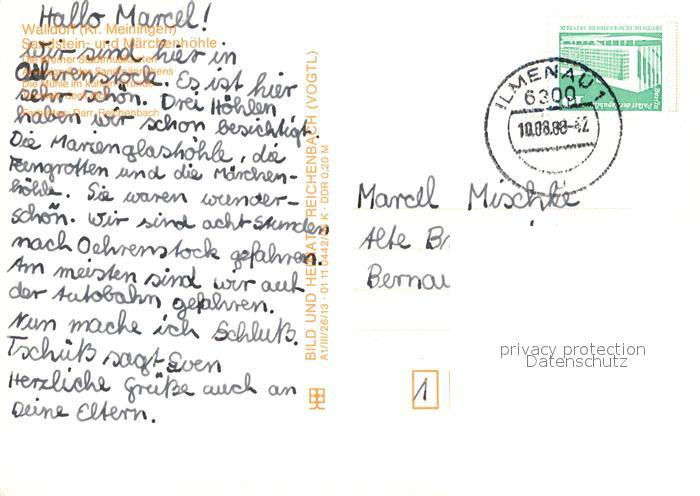 Hallo Marcel!
Wir sind hier in
Oehrenstock. Es ist hier
sehr schön. Drei Höhlen
haben wir schon besichtigt.
Die Marienglashöhle, die
Feengrotten und die Märchen-
höhle. Sie waren wunder-
schön. Wir sind acht Stunden
nach Oehrenstock gefahren.
Am meisten sind wir auf
der Autobahn gefahren.
Nun mache ich Schluß.
Tschüß sagt Sven
Herzliche Grüße auch an
Deine Eltern.
Walldorf (Kr. Meiningen)
Sandstein- und Märchenhöhle
BILD UND HEIMAT REICHENBACH (VOGTL)
A1/III/26/13 · 01 11 0442/ K · DDR 0,20 M
ILMENAU 1
6300
10.08.88-12
Marcel Mischke
Alte
Bernau
1
privacy protection
Datenschutz